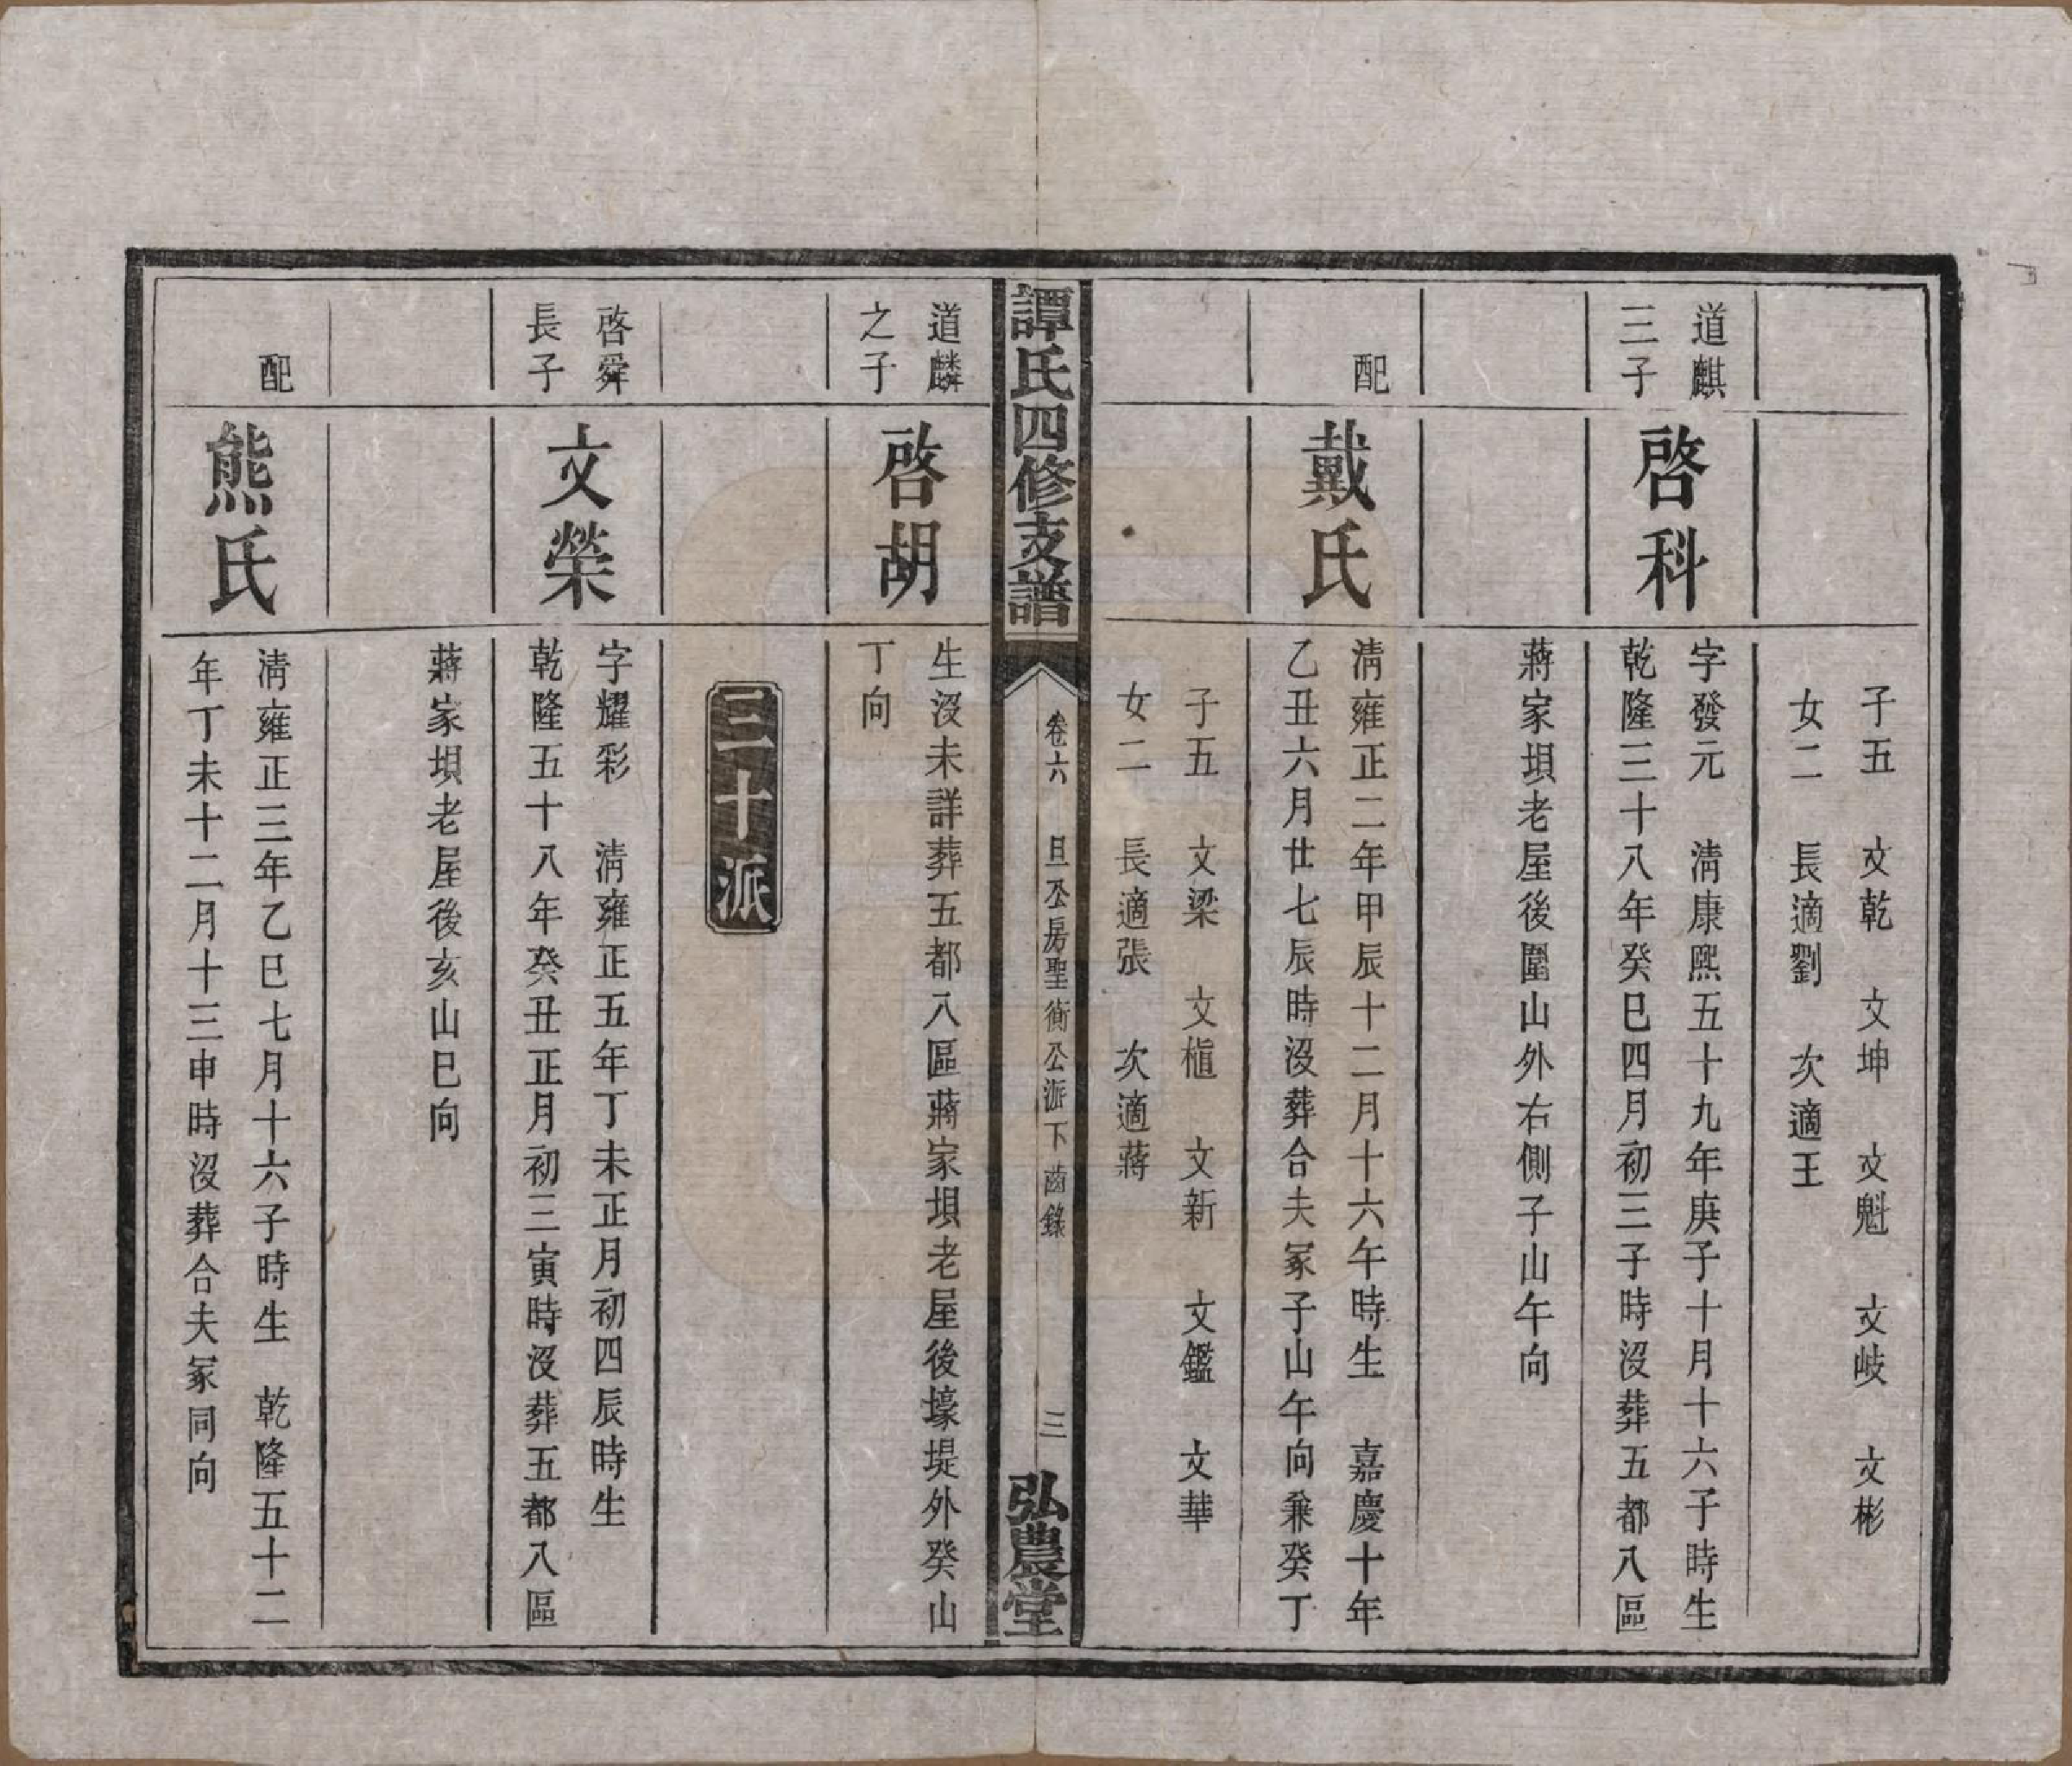 子五　文乾　文坤　文魁　文岐　文彬
女二　長適劉　次適王
道麒
三子
啓科
字發元　清康熙五十九年庚子十月十六子時生
乾隆三十八年癸巳四月初三子時沒葬五都八區
蔣家垻老屋後圍山外右側子山午向
配
戴氏
清雍正二年甲辰十二月十六午時生　嘉慶十年
乙丑六月廿七辰時沒葬合夫冢子山午向兼癸丁
子五　文梁　文樞　文新　文鑑　文華
女二　長適張　次適蔣
譚氏四修支譜
卷六　旦公房聖衡公派下齒錄
三
弘農堂
道麟
之子
啓胡
生沒未詳葬五都八區蔣家垻老屋後壕堤外癸山
丁向
三十派
啓舜
長子
文榮
字耀彩　清雍正五年丁未正月初四辰時生
乾隆五十八年癸丑正月初三寅時沒葬五都八區
蔣家垻老屋後亥山巳向
配
熊氏
清雍正三年乙巳七月十六子時生　乾隆五十二
年丁未十二月十三申時沒葬合夫冢同向